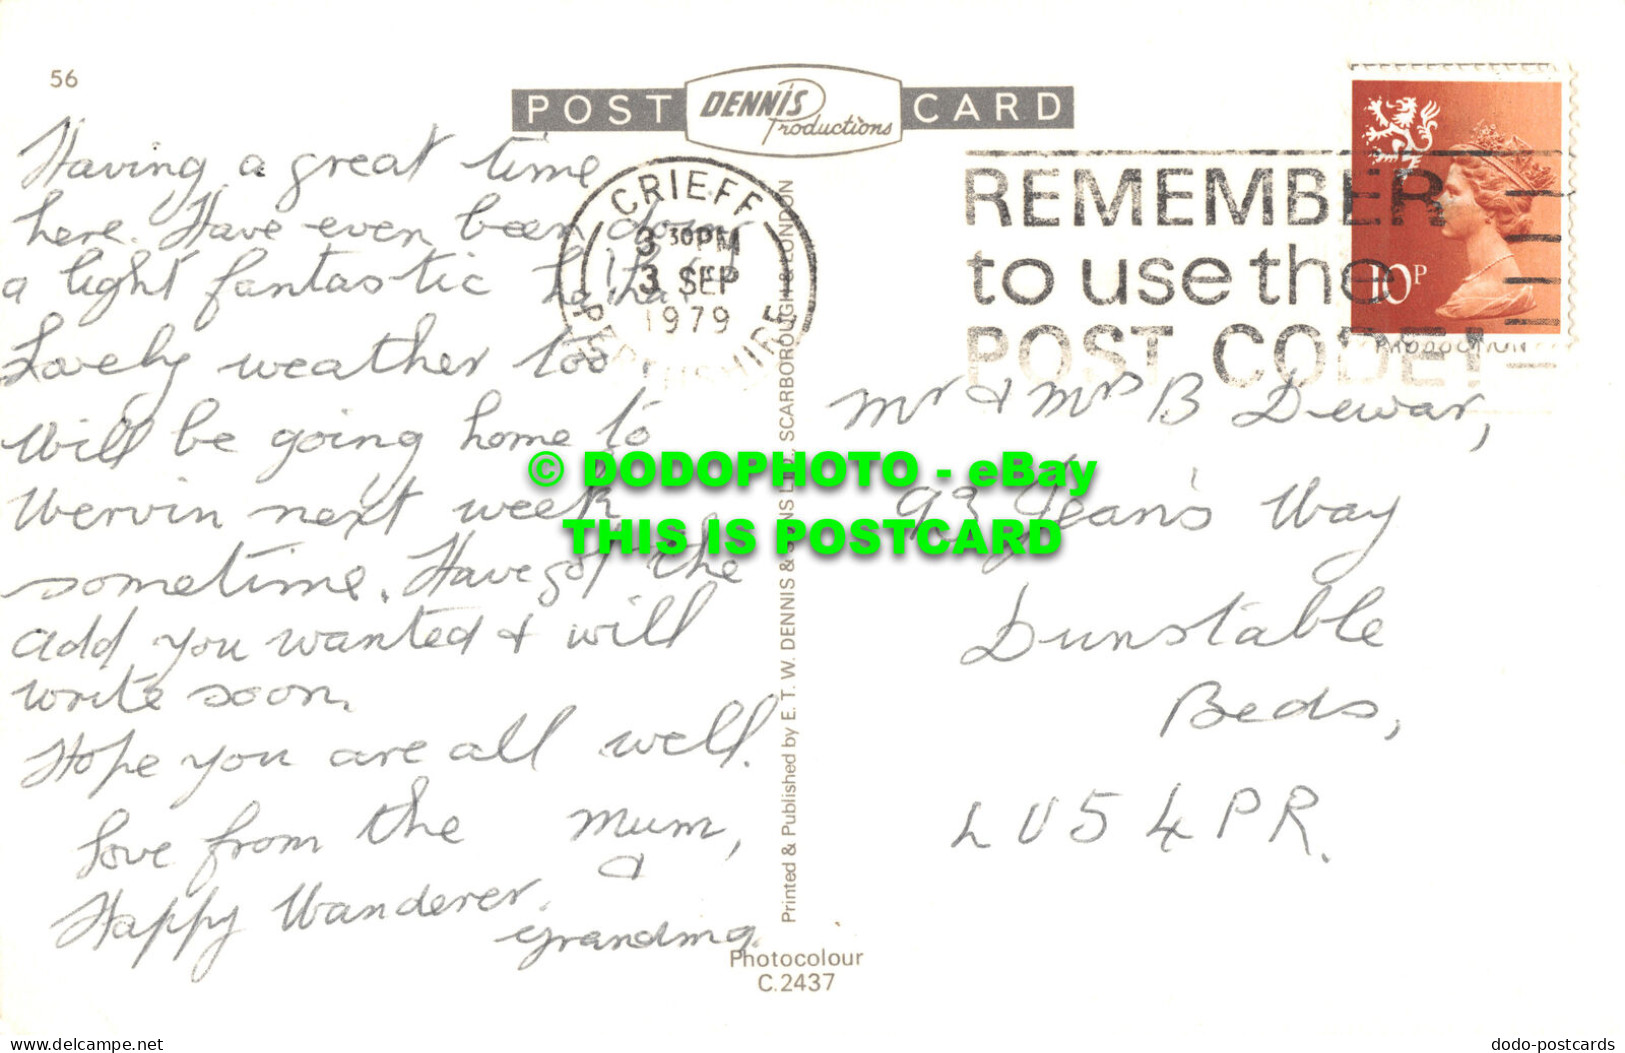 56
POST DENNIS Productions CARD
Having a great time
here. Have even been doing
a light fantastic ha ha!
Lovely weather too.
Will be going home to
Wervin next week
sometime. Have got the
add you wanted & will
write soon.
Hope you are all well.
Love from the Mum,
&
Happy Wanderer.
Grandma.
CRIEFF
3 30PM
3 SEP
1979
PERTHSHIRE
REMEMBER
to use the
POST CODE!
10P
Mr & Mrs B Dewar,
93 Jean's Way
Dunstable
Beds,
LU5 4PR.
Printed & Published by E. T. W. DENNIS & SONS LTD., SCARBOROUGH & LONDON
Photocolour
C.2437
© DODOPHOTO - eBay
THIS IS POSTCARD
www.delcampe.net
dodo-postcards